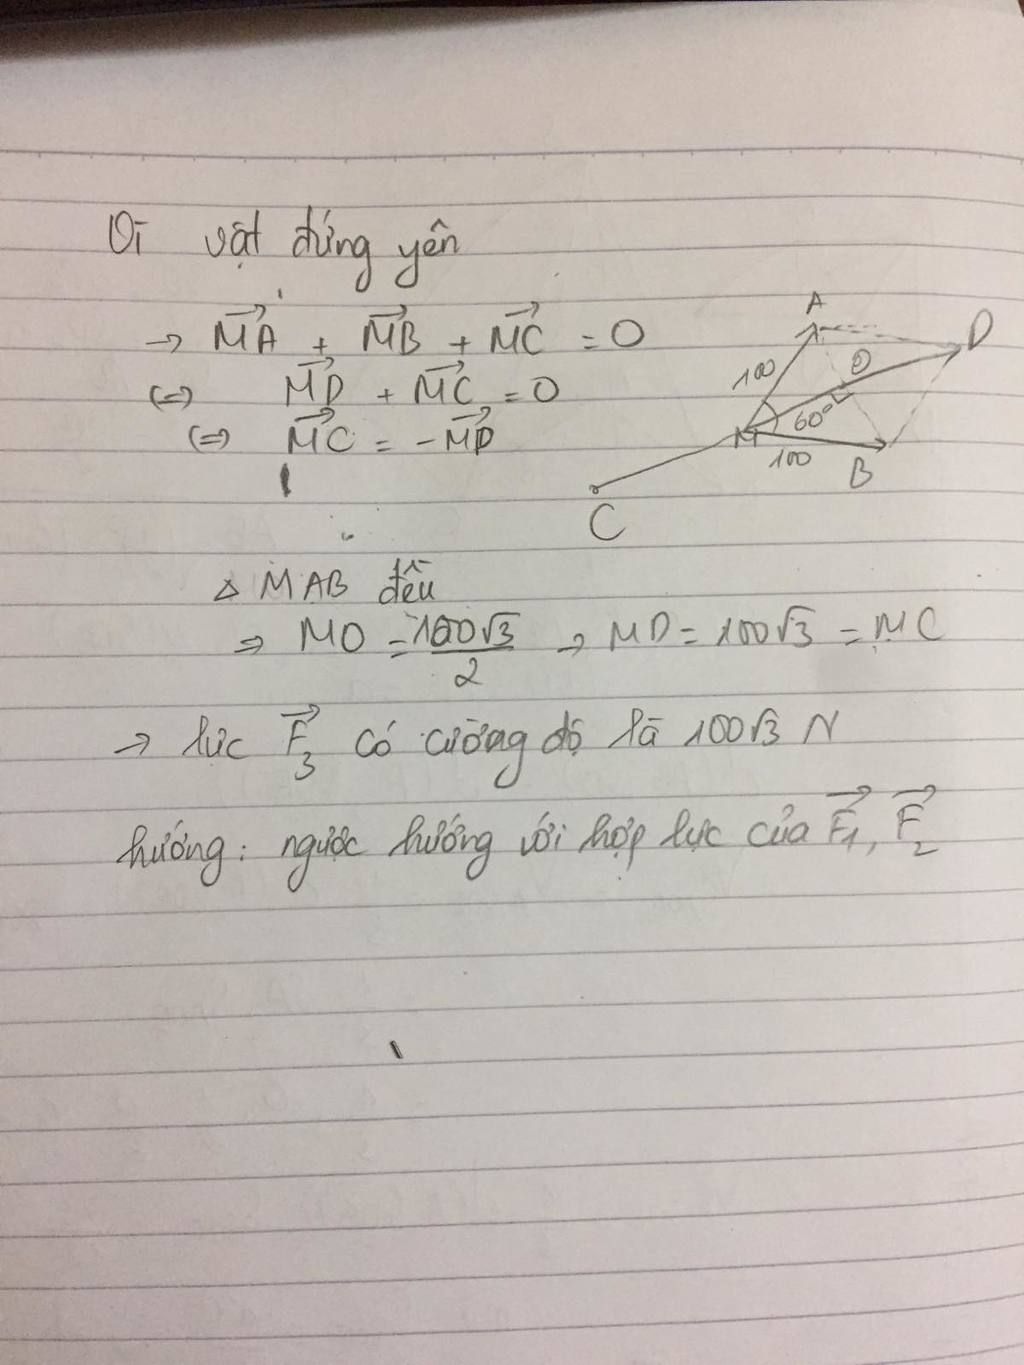 Vì vật đứng yên
→ MA + MB + MC = 0
(=) MD + MC = 0
(=) MC = -MD
A
D
100
O
60°
M
100
B
C
Δ MAB đều
⇒ MO = 100√3/2 → MD = 100√3 = MC
→ lực F3 có cường độ là 100√3 N
hướng: ngược hướng với hợp lực của F1, F2